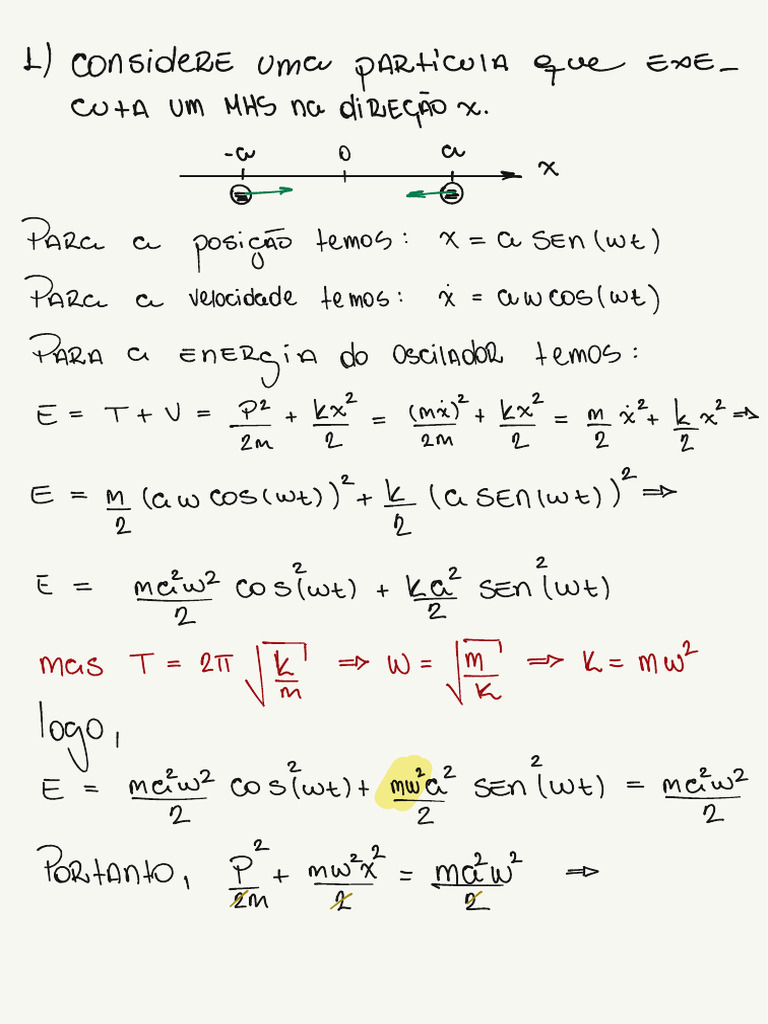 1) Considere uma partícula que exe-
cuta um MHS na direção x.
-a 0 a x
Para a posição temos: x = a sen(wt)
Para a velocidade temos: ẋ = aw cos(wt)
Para a energia do oscilador temos:
E = T + V = P²/2m + kx²/2 = (mẋ)²/2m + kx²/2 = m/2 ẋ² + k/2 x² ⇒
E = m/2 (aw cos(wt))² + k/2 (a sen(wt))² ⇒
E = ma²w²/2 cos²(wt) + ka²/2 sen²(wt)
mas T = 2π √(k/m) ⇒ w = √(m/k) ⇒ k = mw²
logo,
E = ma²w²/2 cos²(wt) + mw²a²/2 sen²(wt) = ma²w²/2
Portanto, P²/2m + mw²x²/2 = ma²w²/2 ⇒